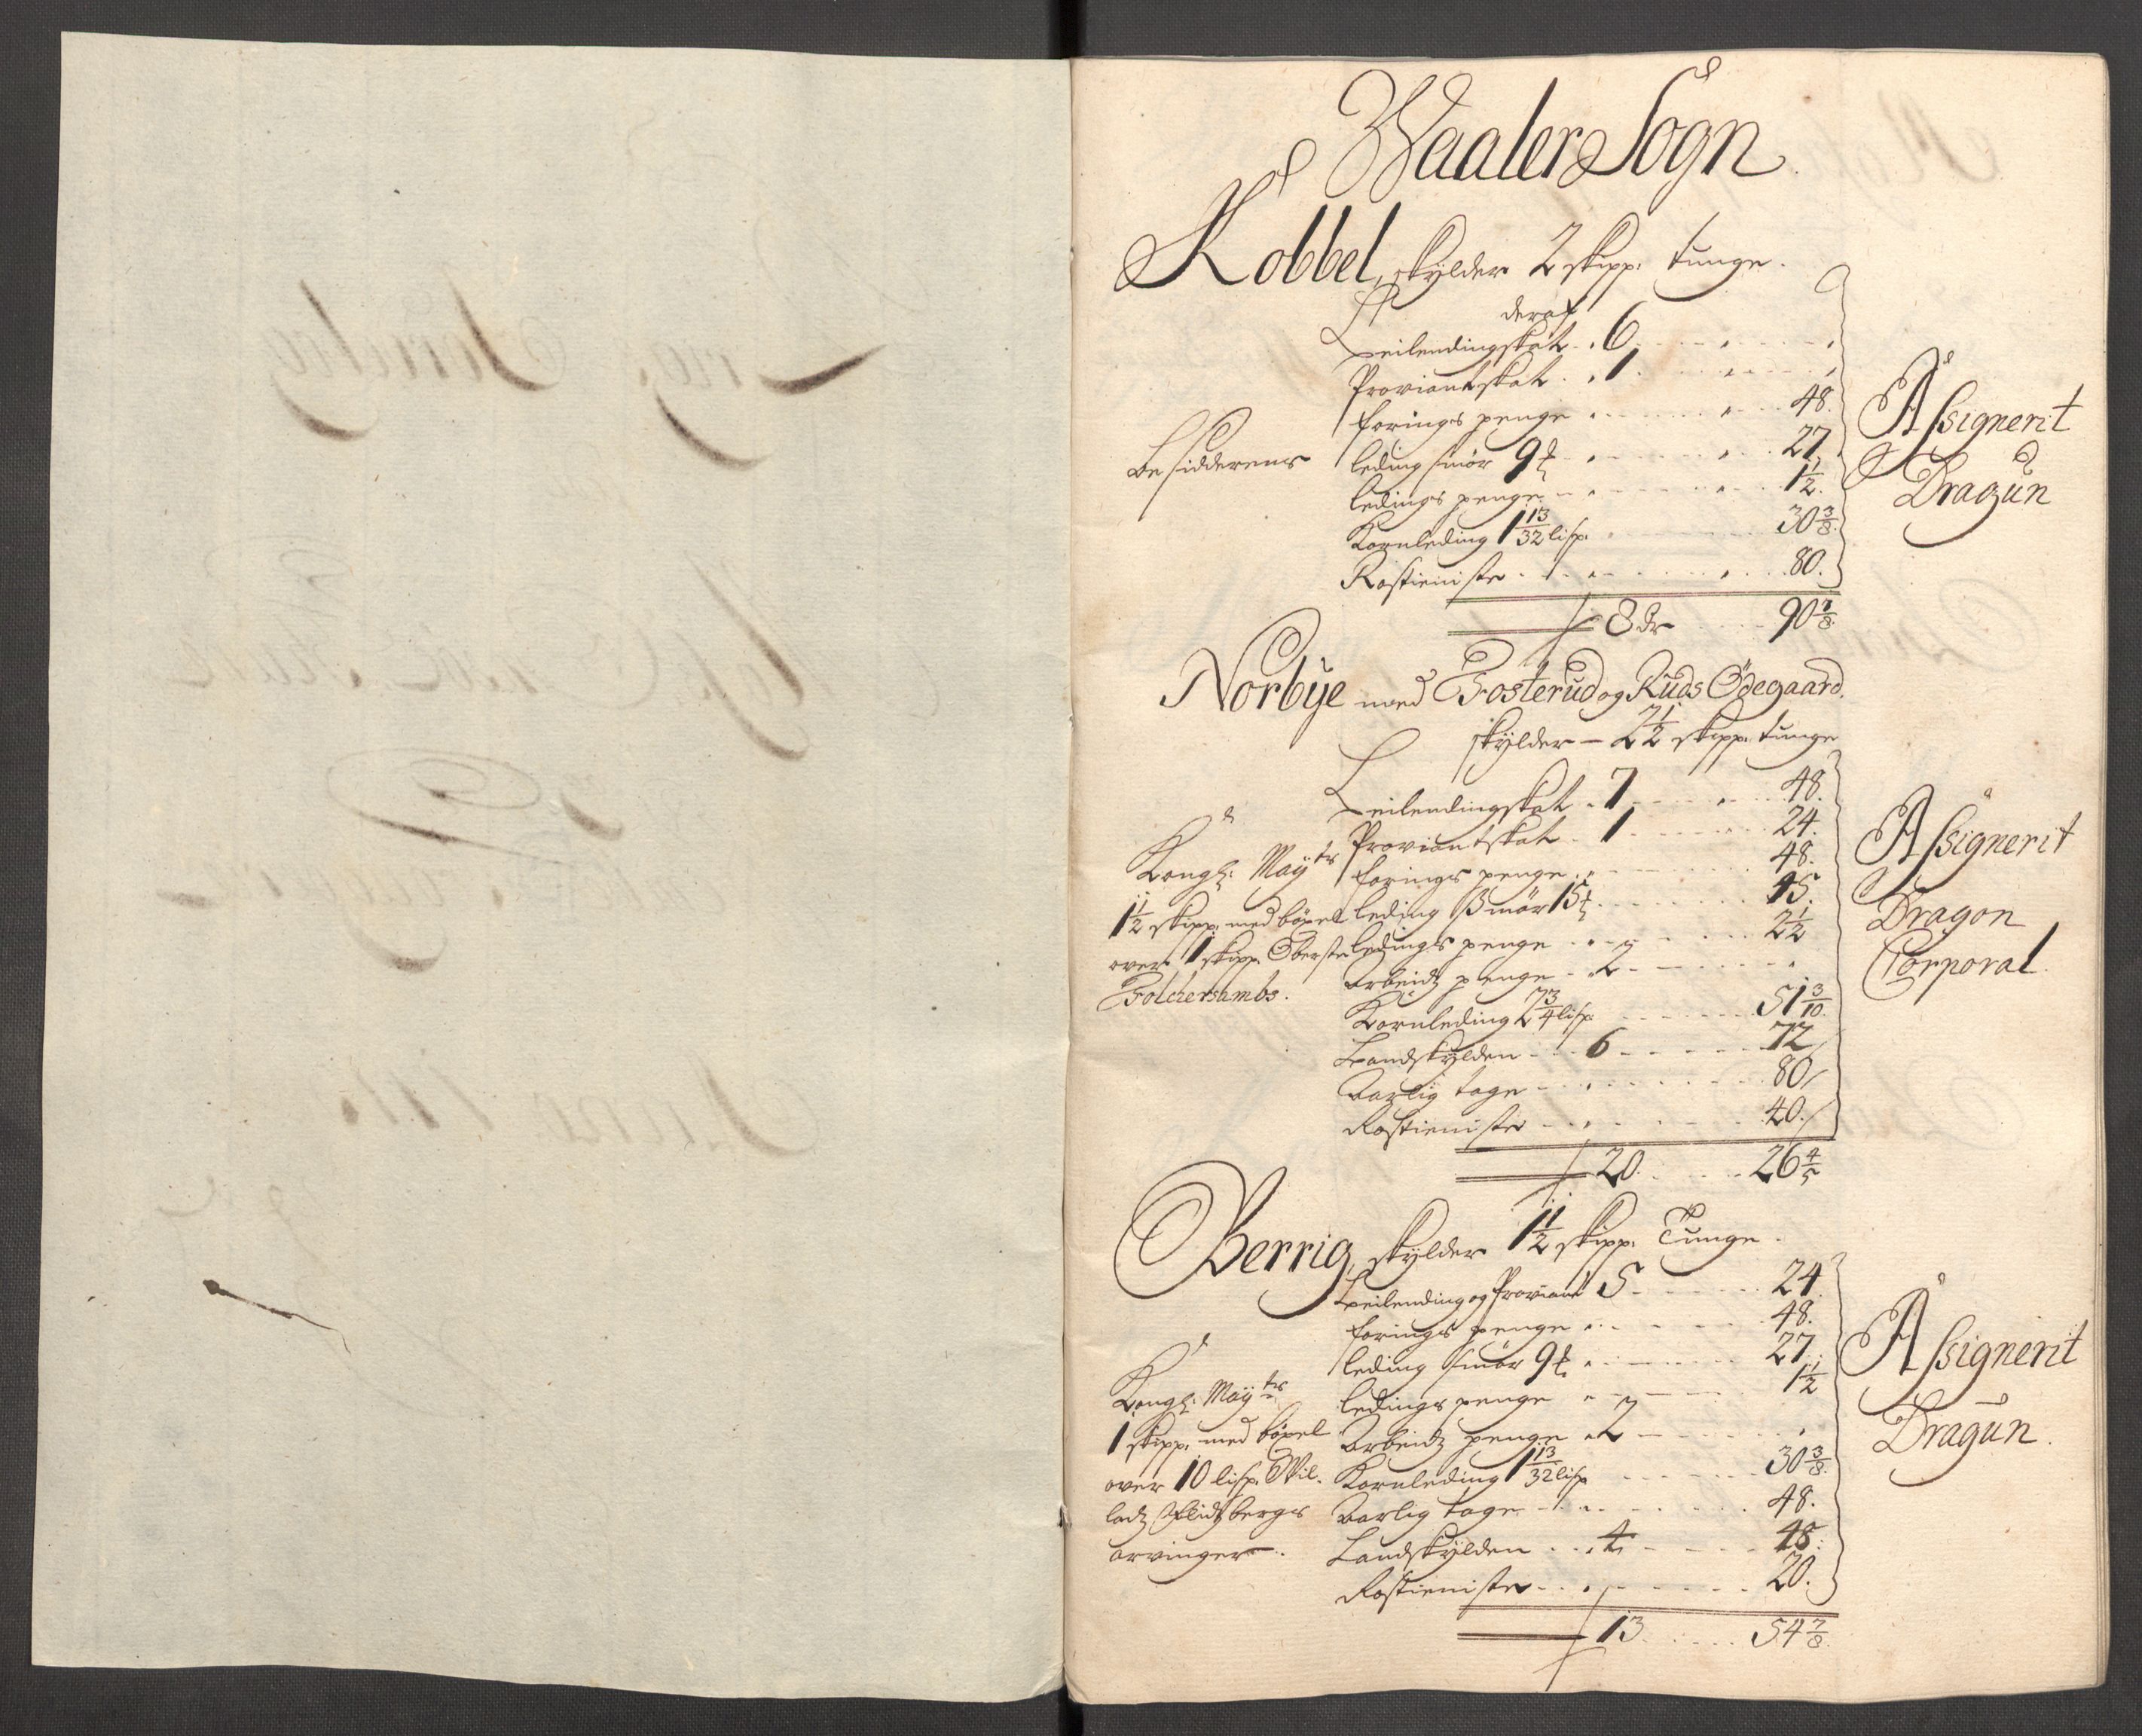 Waaler Sogn
Kobbel, skylder 2 skipp: tunge.
deraf
Leilendingskat 6
Proviantskat 1
foringspenge 48.
Besidderens
leding smör 9 27.
ledings penge 1½.
Kornleding 1 13/32 lisp. 30 3/8.
Rostieniste 80.
8 dr 90 7/8
Assignerit
Dragun
Norbye med Fosterud og Ruds Ödegaard.
skylder 2½ skipp: tunge
Leilendingskat 7 48.
Proviantskat 1 24.
forings penge 48.
leding Smör 15 45.
ledings penge 2½
Arbeidz penge 2
Kornleding 2¾ lisp. 51 3/10
Landskylden 6 72
Aarlig tage 80
Rostieniste 40.
20 26 4/5
Kongl: Mayts
1½ skipp: med böxel
over 1 skipp. Oberste
Assignerit
Dragon
Corporal.
Berrig, skylder 1½ skipp: Tunge.
Leilending og Proviant 5 24
forings penge 48.
leding smör 9 27.
ledings penge 1½
Arbeidz penge 2
Kornleding 1 13/32 lisp 30 3/8.
Aarlig tage 48.
Landskylden 4 48.
Rostieniste 20.
13 54 7/8.
Kongl: Mayts
1 skipp: med böxel
over 10 lisp.
arvinger.
Assignerit
Dragun.